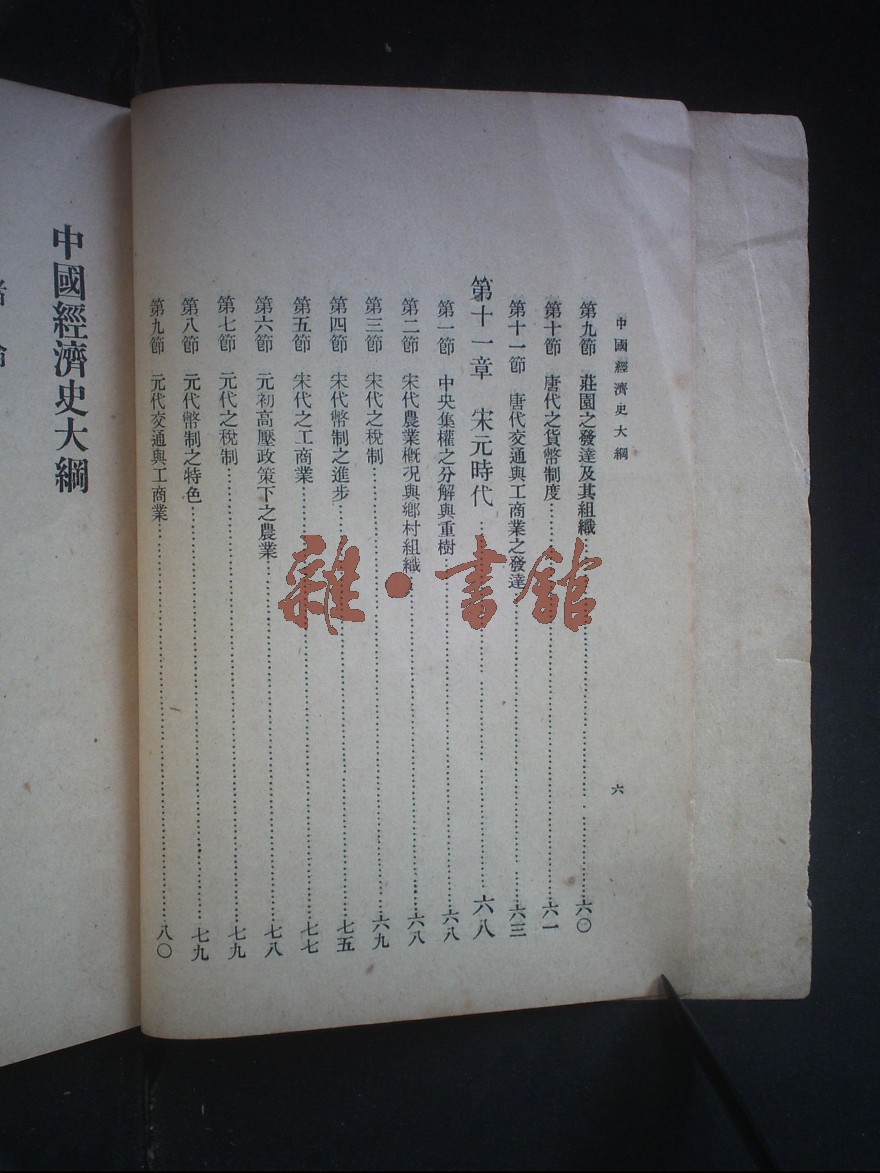 中國經濟史大綱
六
第九節 莊園之發達及其組織……六〇
第十節 唐代之貨幣制度……六一
第十一節 唐代交通與工商業之發達……六三
第十一章 宋元時代……六八
第一節 中央集權之分解與重樹……六八
第二節 宋代農業概況與鄉村組織……六八
第三節 宋代之稅制……六九
第四節 宋代幣制之進步……七五
第五節 宋代之工商業……七七
第六節 元初高壓政策下之農業……七八
第七節 元代之稅制……七九
第八節 元代幣制之特色……七九
第九節 元代交通與工商業……八〇
中國經濟史大綱
雜·書館